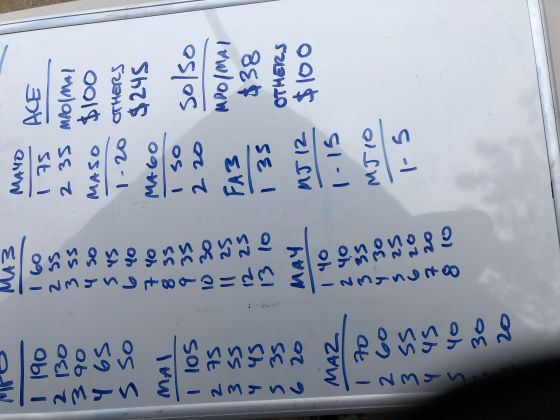 MPO
1 190
2 130
3 90
4 65
5 50
MA1
1 105
2 75
3 55
4 45
5 35
6 20
MA2
1 70
2 60
3 55
4 45
5 40
30
20
MA3
1 60
2 55
3 55
4 50
5 45
6 40
7 40
8 35
9 35
10 30
11 25
12 25
13 10
MA4
1 40
2 40
3 35
4 30
5 25
6 20
7 20
8 10
MA40
1 75
2 35
MA50
1 - 20
MA60
1 50
2 20
FA3
1 35
MJ12
1 - 15
MJ10
1 - 5
ACE
MPO/MA1
$100
OTHERS
$245
50/50
MPO/MA1
$38
OTHERS
$100